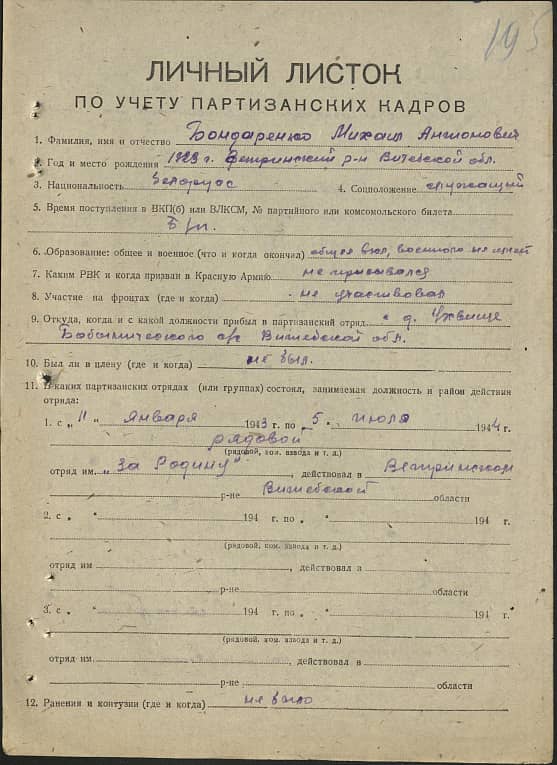 195
ЛИЧНЫЙ ЛИСТОК
ПО УЧЕТУ ПАРТИЗАНСКИХ КАДРОВ
1. Фамилия, имя и отчество Бондаренко Михаил Антонович
2. Год и место рождения 1923 г. Ветринский р-н Витебской обл.
3. Национальность белорус 4. Соцположение служащий
5. Время поступления в ВКП(б) или ВЛКСМ, № партийного или комсомольского билета
Б/п.
6. Образование: общее и военное (что и когда окончил) общее 8 кл, военного не имеет
7. Каким РВК и когда призван в Красную Армию не призывался
8. Участие на фронтах (где и когда) не участвовал
9. Откуда, когда и с какой должности прибыл в партизанский отряд с д. Ухвище
Бабыничского с/с Витебской обл.
10. Был ли в плену (где и когда) не был.
11. В каких партизанских отрядах (или группах) состоял, занимаемая должность и район действия
отряда:
1. с „11“ января 1943 г. по „5“ июля 1944 г.
рядовой
(рядовой, ком. взвода и т. д.)
отряд им. "За Родину", действовал в Ветринском
р-не Витебской области
2. с „ “ 194 г. по „ “ 194 г.
(рядовой, ком. взвода и т. д.)
отряд им , действовал в
р-не области
3. с „ “ 194 г. по „ “ 194 г.
(рядовой, ком. взвода и т. д.)
отряд им. , действовал в
р-не области
12. Ранения и контузии (где и когда) не было